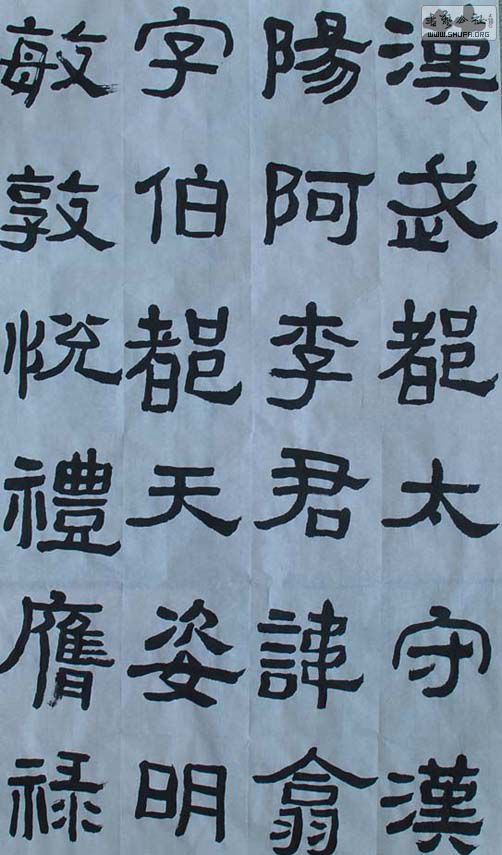 漢武都太守漢
陽阿李君諱翕
字伯都天姿明
敏敦悅禮膺祿
WWW.SHUFA.ORG